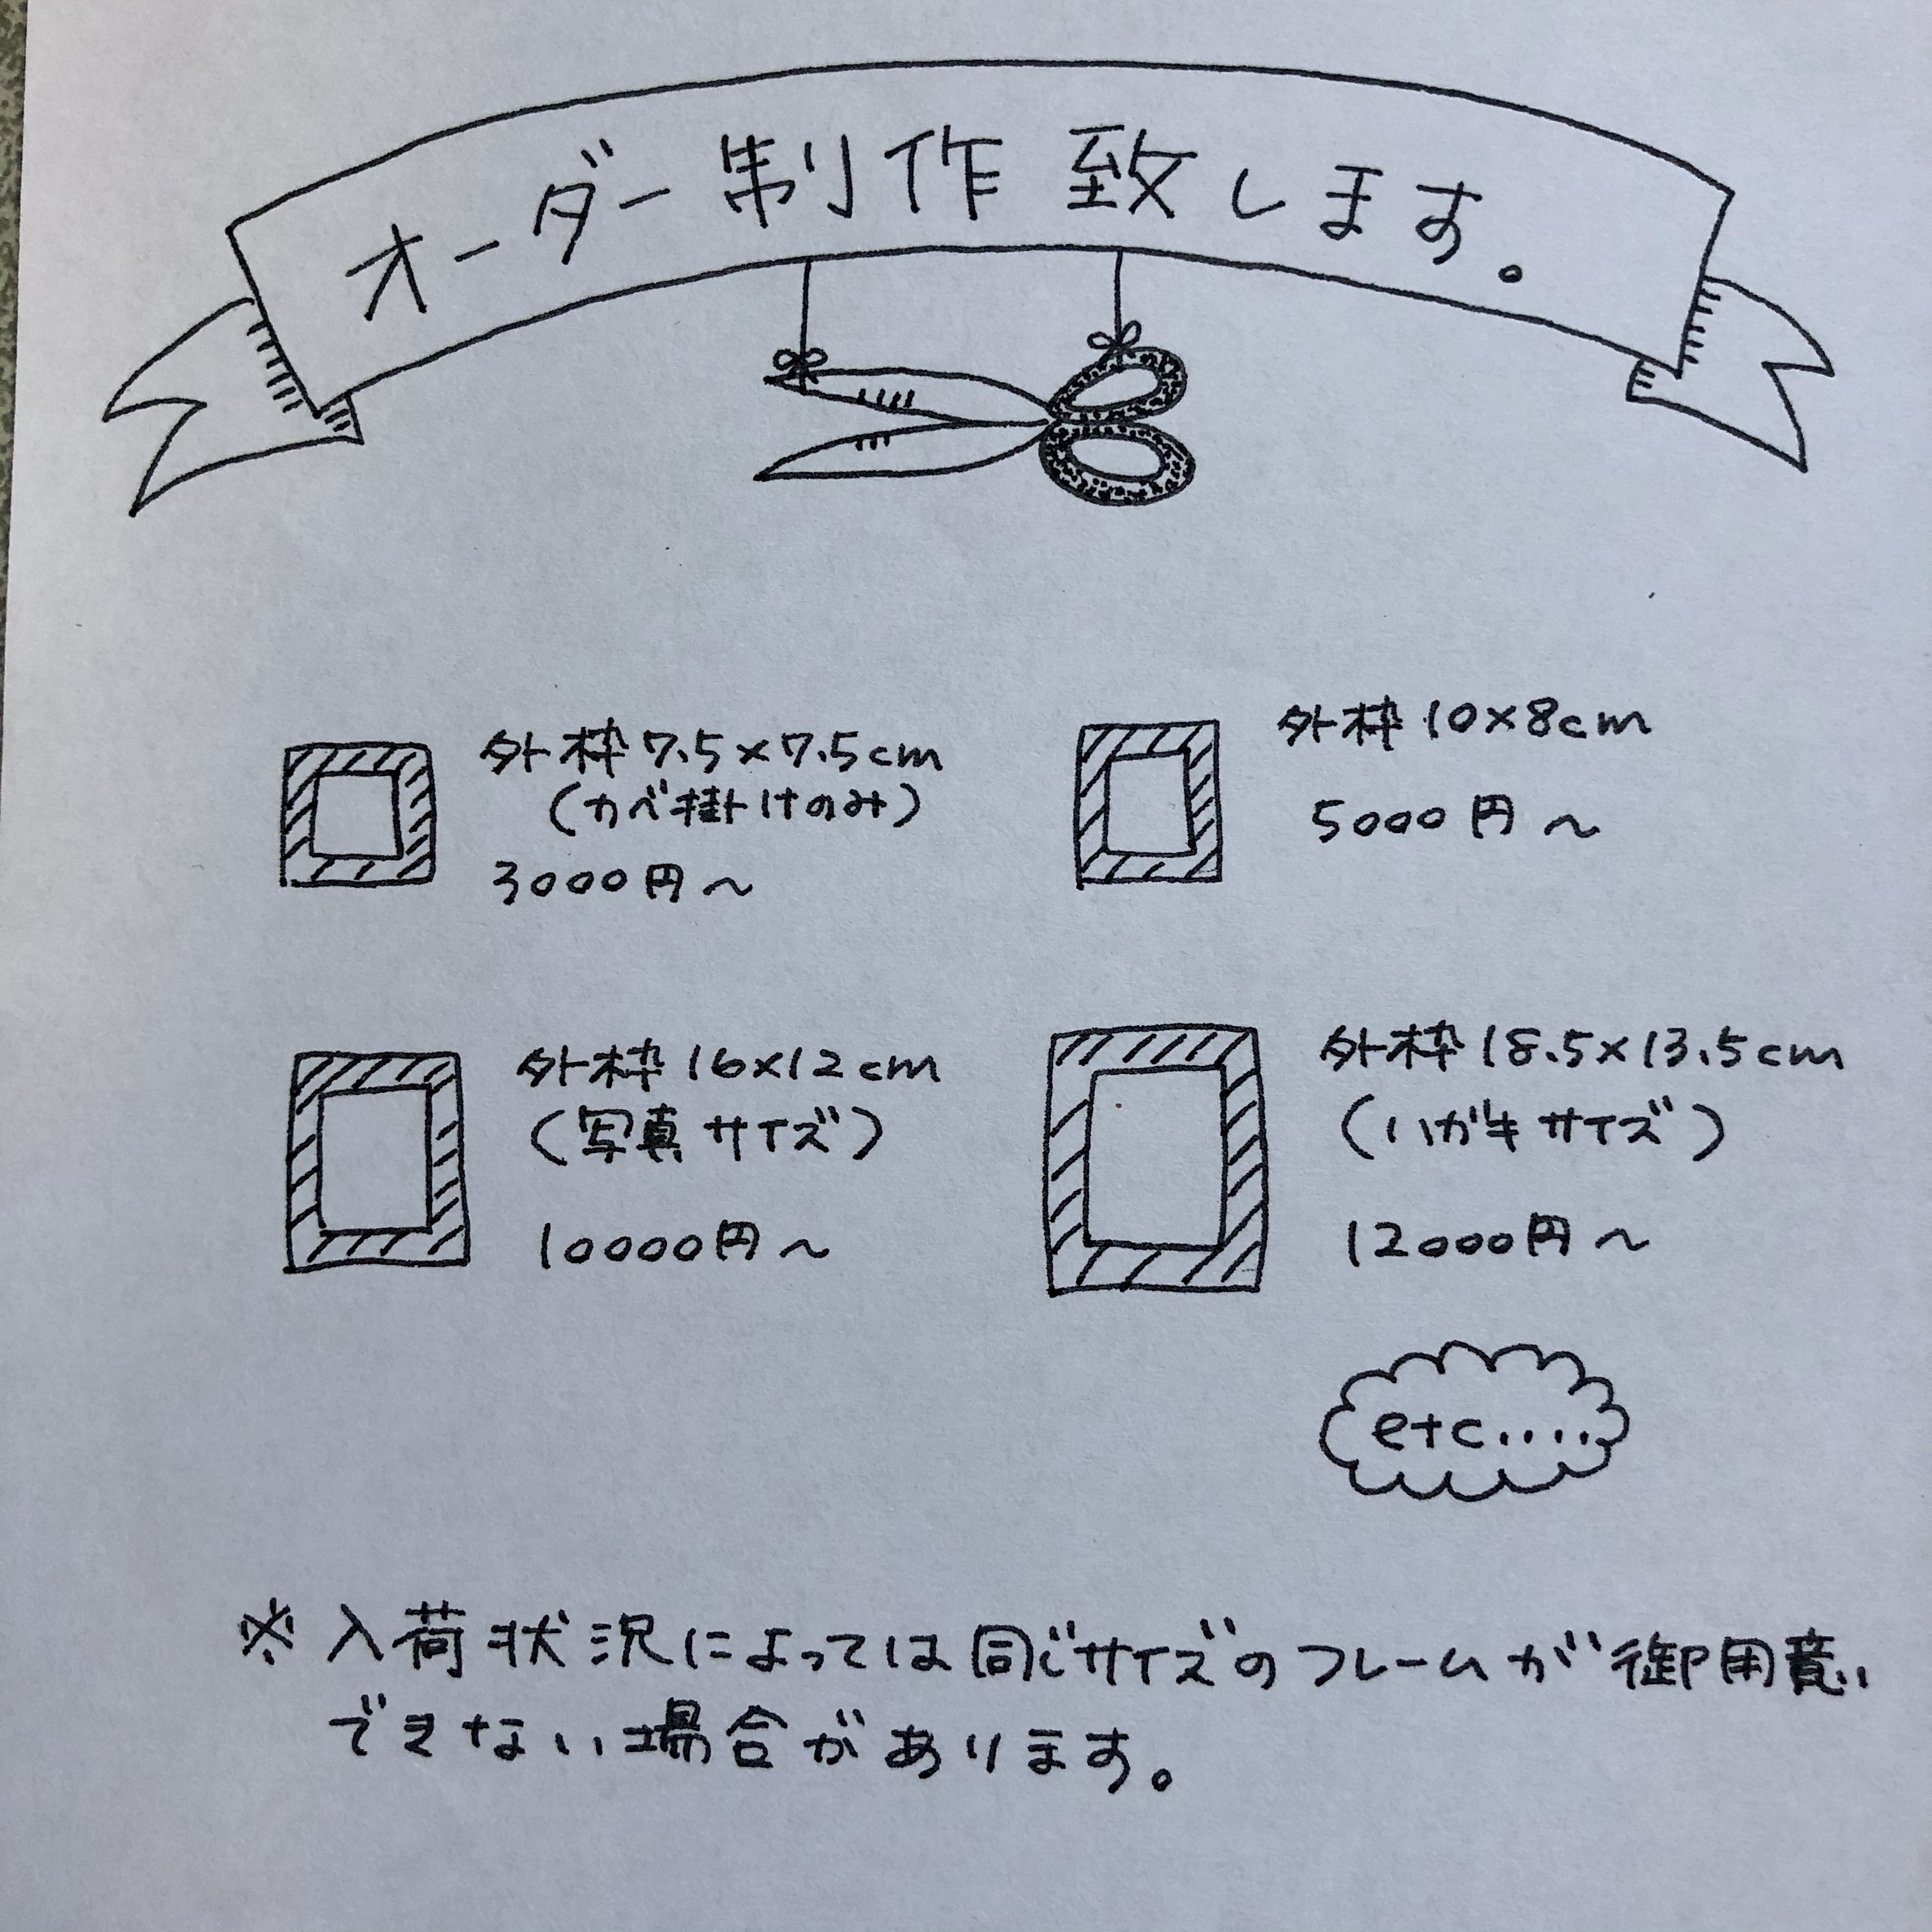 オーダー制作致します。
外枠 7.5×7.5cm
(カベ掛けのみ)
3000円〜
外枠 10×8cm
5000円〜
外枠 16×12cm
(写真サイズ)
10000円〜
外枠 18.5×13.5cm
(ハガキサイズ)
12000円〜
etc....
※入荷状況によっては同じサイズのフレームが御用意
できない場合があります。